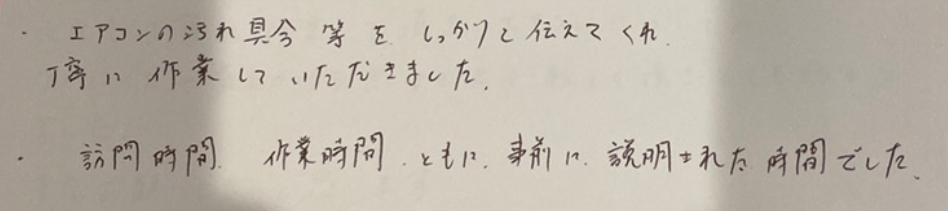 ・ エアコンの汚れ具合 等を しっかりと伝えてくれ
丁寧に 作業していただきました。
・ 訪問時間、作業時間、ともに、事前に、説明された時間でした。